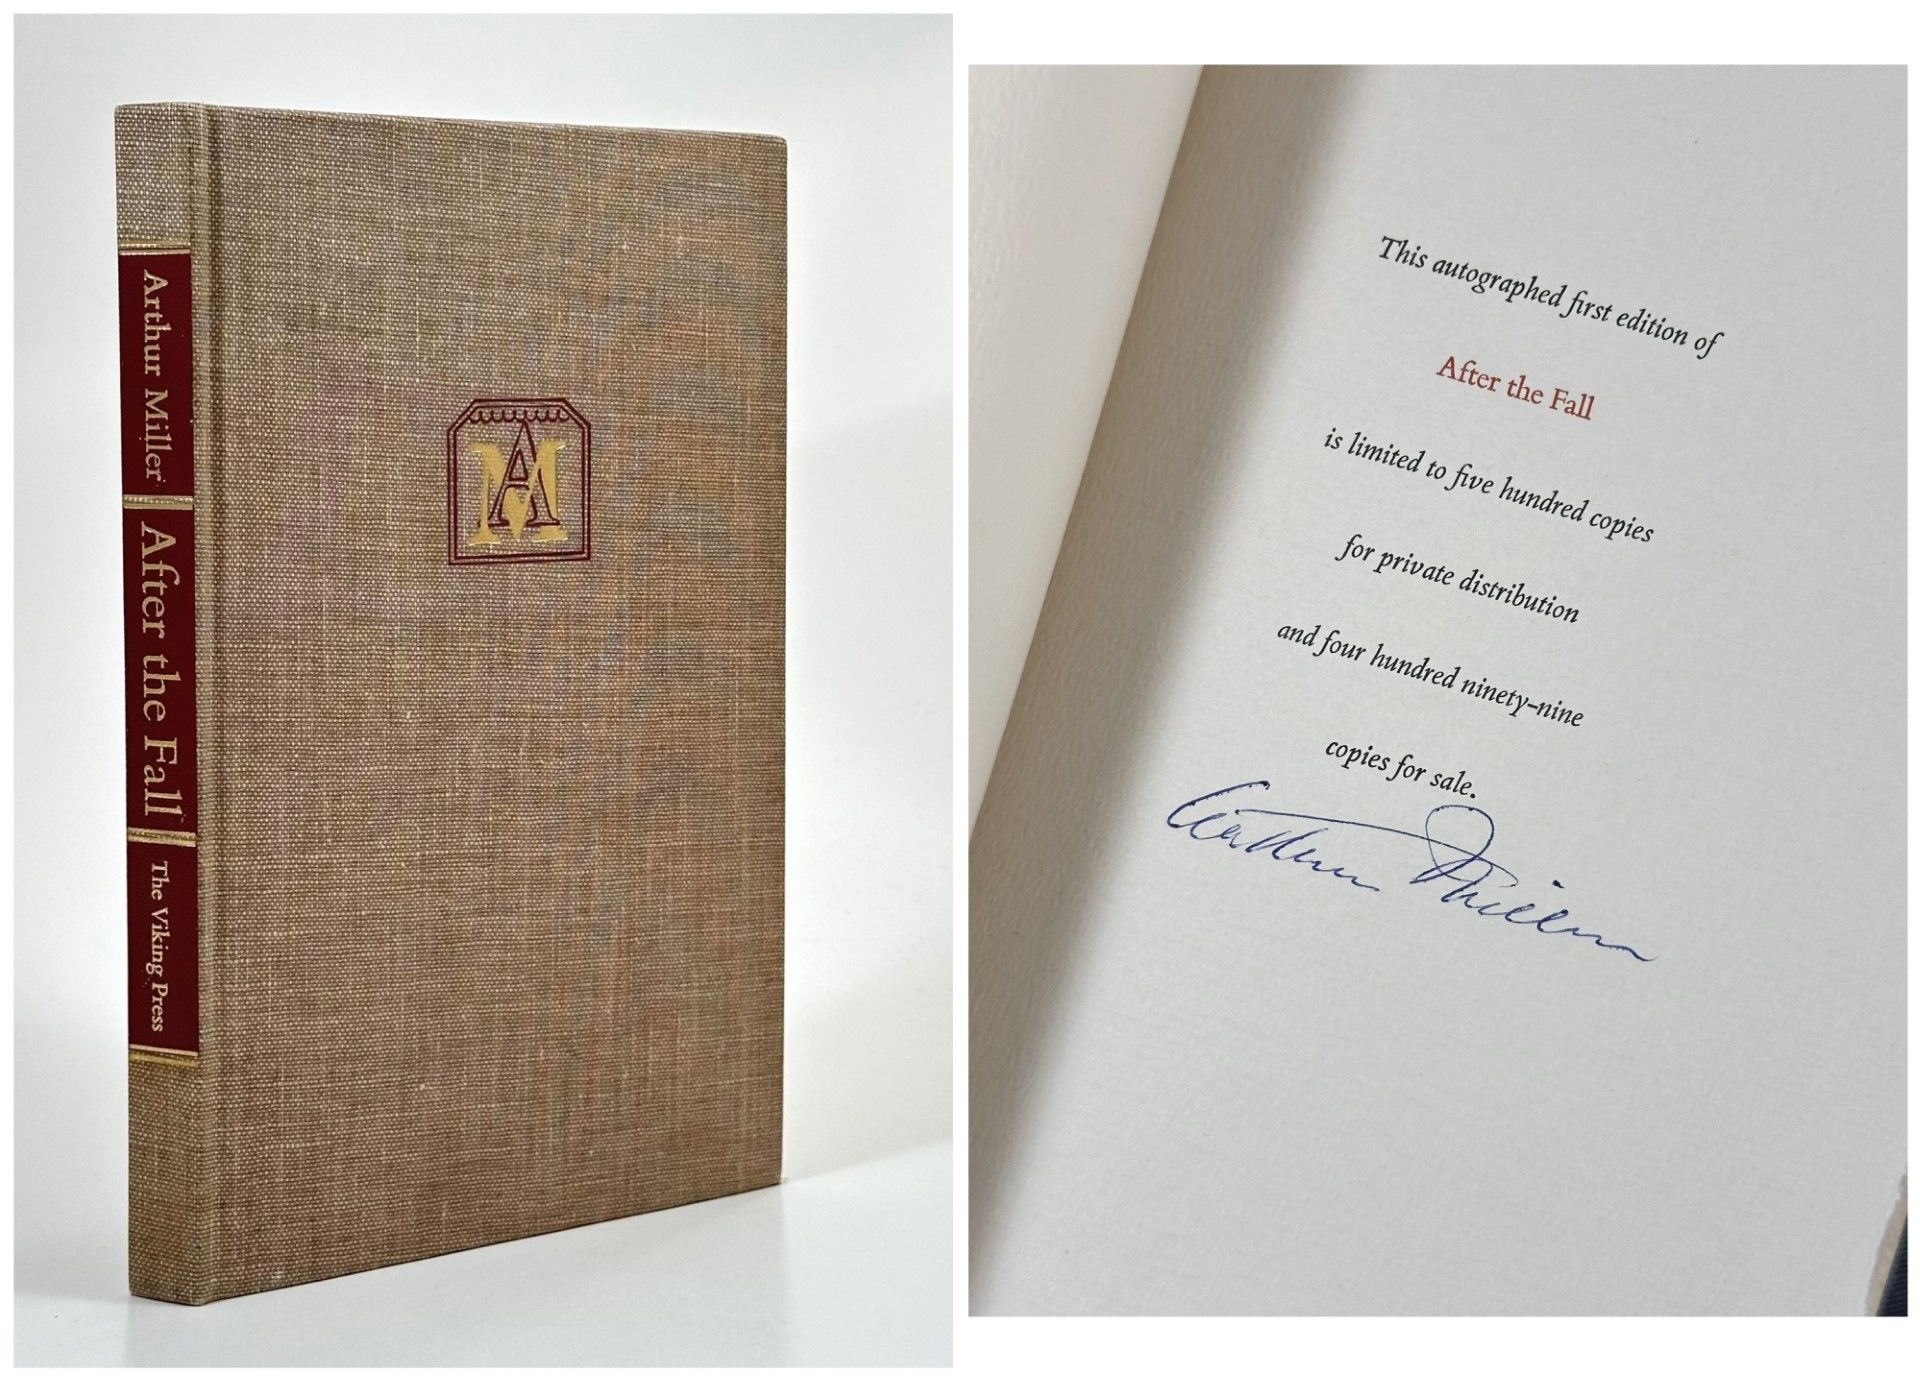 Arthur Miller
After the Fall
The Viking Press
AM
This autographed first edition of
After the Fall
is limited to five hundred copies
for private distribution
and four hundred ninety-nine
copies for sale.
Arthur Miller